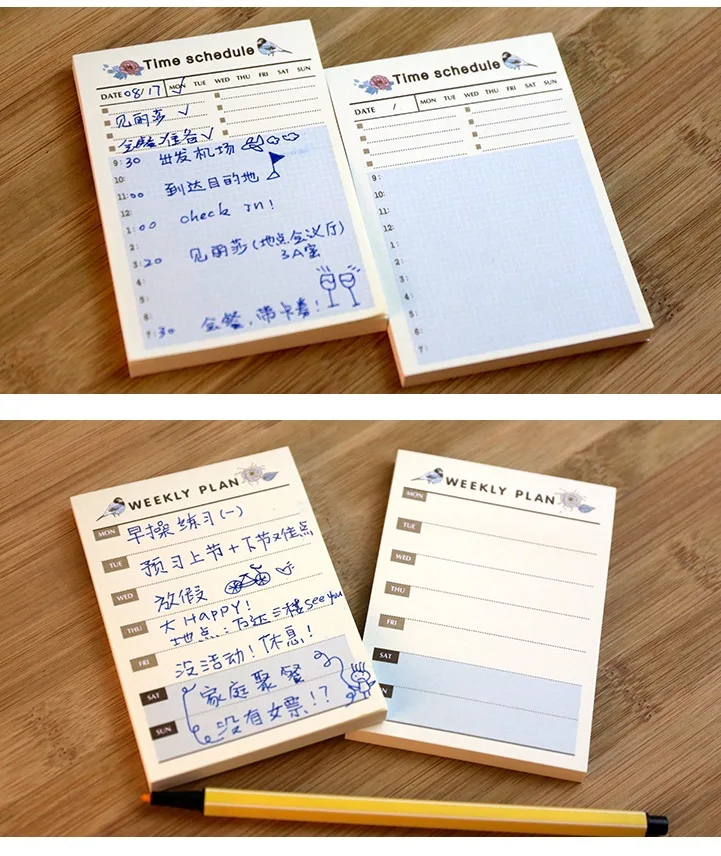 Time schedule
DATE 08/17 MON TUE WED THU FRI SAT SUN
见丽莎 √
会餐准备√
9:30 出发机场
10:
11:00 到达目的地
12:
1:00 check in!
2:
3:20 见丽莎(地点会议厅)
3A室
4:
5:
6:
7:30 会餐,带卡券!
Time schedule
DATE / MON TUE WED THU FRI SAT SUN
9:
10:
11:
12:
1:
2:
3:
4:
5:
6:
7:
WEEKLY PLAN
MON 早操练习(一)
TUE 预习上节+下节难点
WED 放假
THU 大HAPPY!
地点:万达三楼see you
FRI 没活动!休息!
SAT 家庭聚餐
SUN 没有女票!?
WEEKLY PLAN
MON
TUE
WED
THU
FRI
SAT